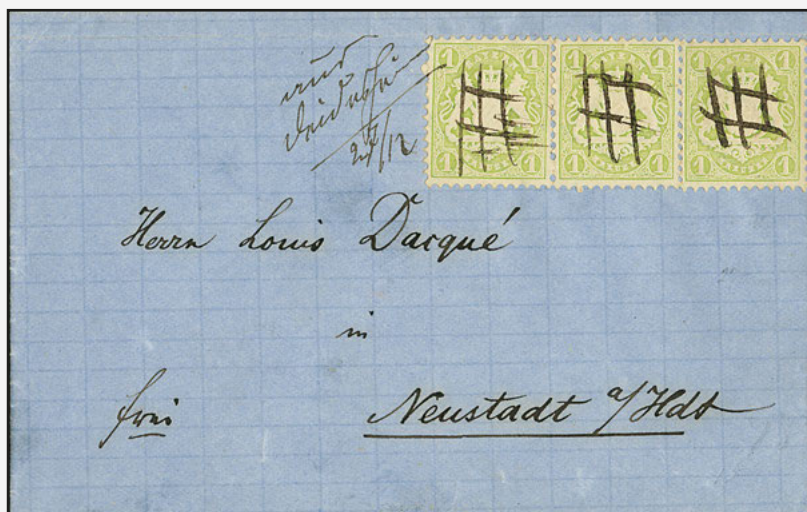 aus
Deidesheim
27/12
1 1 1 1 1 1
1 1 1 1 1 1
Herrn Louis Dacqué
in
frei Neustadt a/Hdt